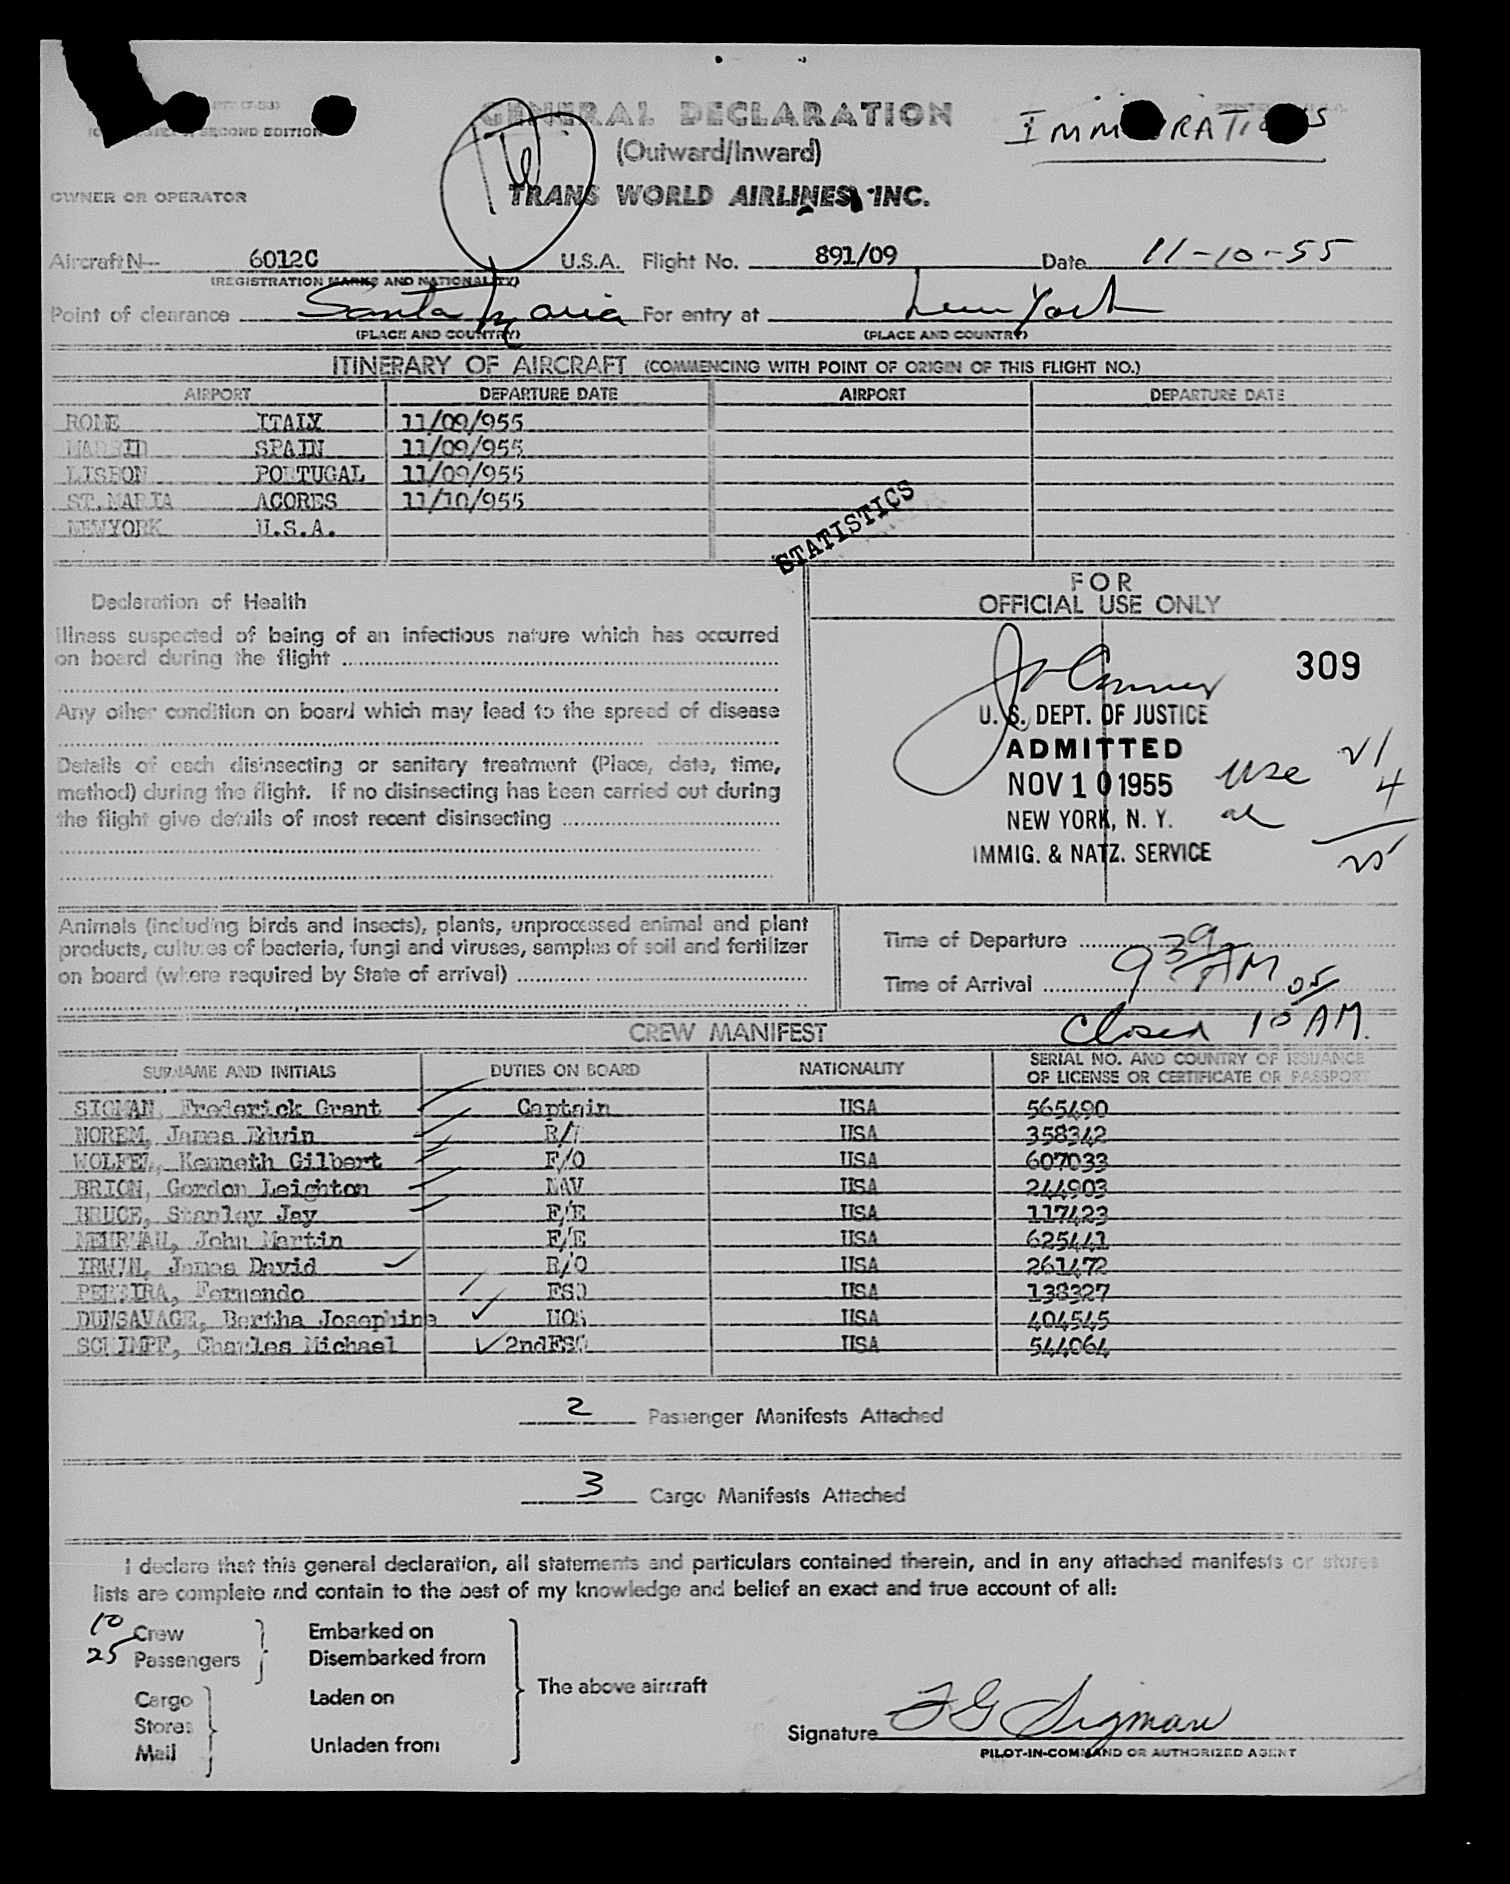 SECOND EDITION
GENERAL DECLARATION
(Outward/Inward)
IMMIGRATIONS
OWNER OR OPERATOR
TRANS WORLD AIRLINES, INC.
Aircraft N— 6012C U.S.A. Flight No. 891/09 Date 11-10-55
(REGISTRATION MARKS AND NATIONALITY)
Point of clearance Santa Maria For entry at New York
(PLACE AND COUNTRY) (PLACE AND COUNTRY)
ITINERARY OF AIRCRAFT (COMMENCING WITH POINT OF ORIGIN OF THIS FLIGHT NO.)
AIRPORT DEPARTURE DATE AIRPORT DEPARTURE DATE
ROME ITALY 11/09/955
MADRID SPAIN 11/09/955
LISBON PORTUGAL 11/09/955
ST.MARIA ACORES 11/10/955
NEWYORK U.S.A.
STATISTICS
Declaration of Health
Illness suspected of being of an infectious nature which has occurred
on board during the flight
Any other condition on board which may lead to the spread of disease
Details of each disinsecting or sanitary treatment (Place, date, time,
method) during the flight. If no disinsecting has been carried out during
the flight give details of most recent disinsecting
FOR
OFFICIAL USE ONLY
309
U. S. DEPT. OF JUSTICE
ADMITTED
NOV 10 1955
NEW YORK, N. Y.
IMMIG. & NATZ. SERVICE
USC 21
al 4
25
Animals (including birds and insects), plants, unprocessed animal and plant
products, cultures of bacteria, fungi and viruses, samples of soil and fertilizer
on board (where required by State of arrival)
Time of Departure
Time of Arrival 9 39 AM
Closed 10 05 AM.
CREW MANIFEST
SURNAME AND INITIALS DUTIES ON BOARD NATIONALITY SERIAL NO. AND COUNTRY OF ISSUANCE
OF LICENSE OR CERTIFICATE OR PASSPORT
SIGMAN, Frederick Grant Captain USA 565490
NOREM, James Edwin USA 358342
Kenneth Gilbert F/O USA 607033
BRION, Gordon Leighton NAV USA 244903
BRUCE, Stanley Jay F/E USA 117423
John Martin F/E USA 625441
IRWIN, James David R/O USA 261472
PEREIRA, Fernando FSO USA 138327
DUNSAVAGE, Bertha Josephine HOS USA 404545
SCHIMPF, Charles Michael 2ndFSO USA 544064
2 Passenger Manifests Attached
3 Cargo Manifests Attached
I declare that this general declaration, all statements and particulars contained therein, and in any attached manifests or stores
lists are complete and contain to the best of my knowledge and belief an exact and true account of all:
10 Crew Embarked on
25 Passengers Disembarked from
The above aircraft
Cargo Laden on
Stores
Mail Unladen from
Signature F G Sigman
PILOT-IN-COMMAND OR AUTHORIZED AGENT